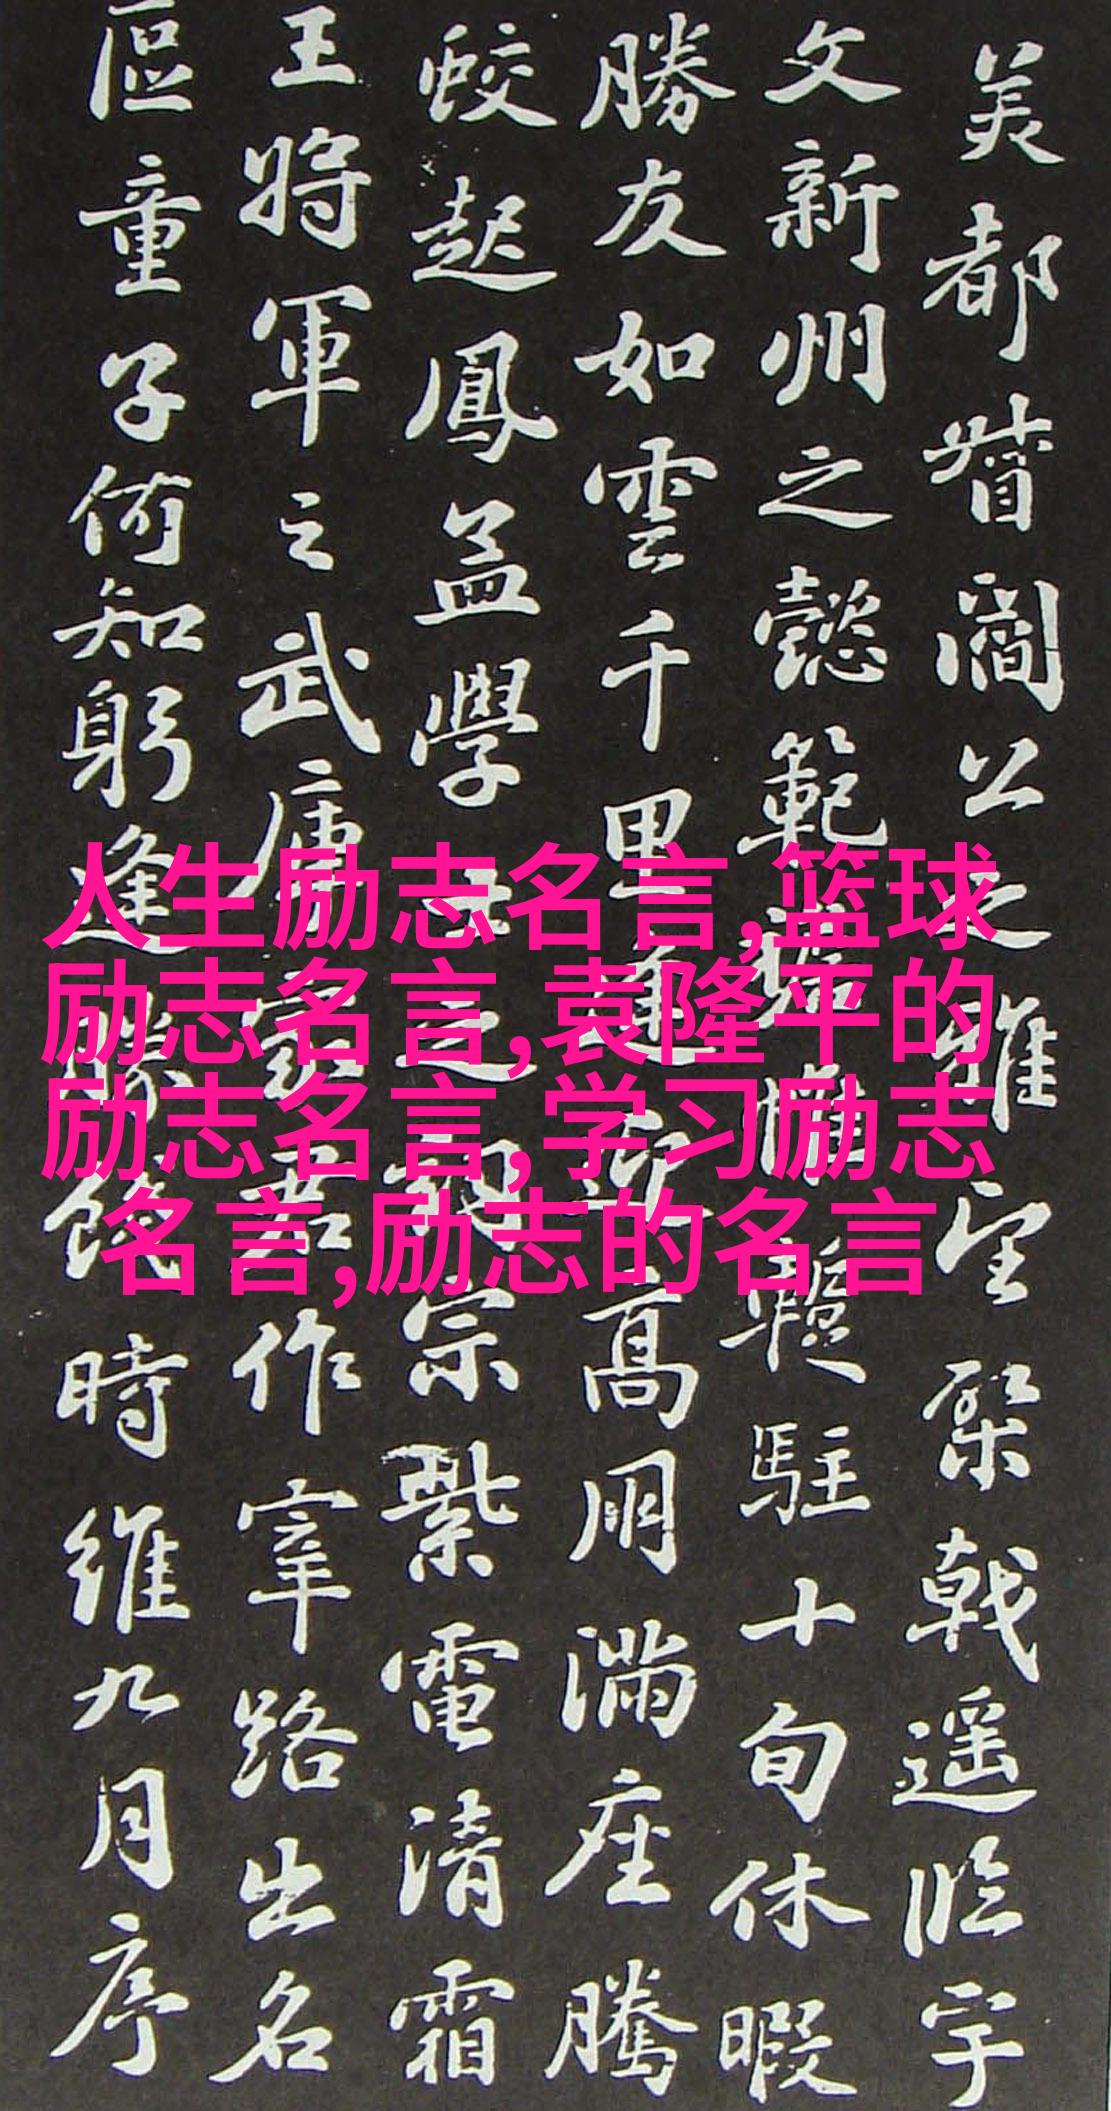 美都督閻公之雅望棨戟遥臨宇
文新州之懿範襜帷暫駐十旬休暇
勝友如雲千里逢迎高朋滿座騰
蛟起鳳孟學士之詞宗紫電清霜
王將軍之武庫家君作宰路出名
區童子何知躬逢勝餞時維九月序
人生励志名言,篮球
励志名言,袁隆平的
励志名言,学习励志
名言,励志的名言